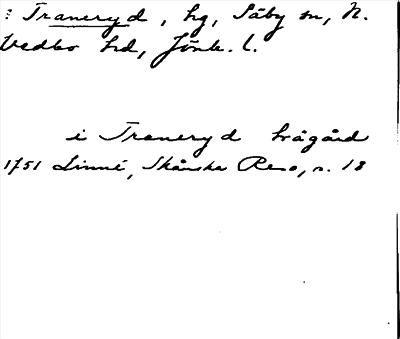 : Traneryd, hg, Säby sn, N.
Vedbo hd, Jönk. l.
i Traneryd hvägård
1751 Linné, Skånska Resa, s. 18